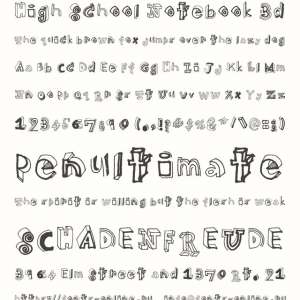 High School Notebook 3d
the quick brown fox jumps over the lazy dog
Aa Bb Cc Dd Ee Ff Gg Hh Ii Jj Kk Ll Mm
Nn Oo Pp Qq Rr Ss Tt Uu Vv Ww Xx Yy Zz
1234567890
Penultimate
the spirit is willing but the flesh is weak
SCHADENFREUDE
3964 Elm Street and 1370 rt. 21